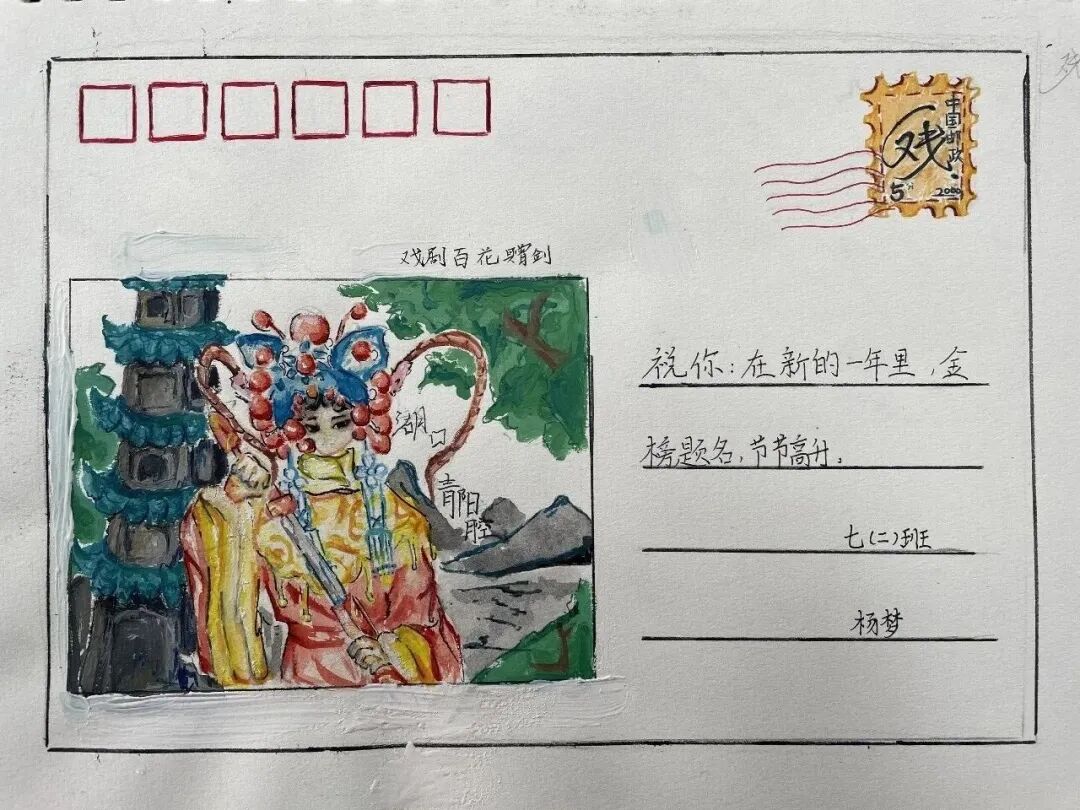 中国邮政
戏
5分
2000
戏剧百花赠剑
湖口
青阳腔
祝你:在新的一年里,金
榜题名,节节高升。
七(二)班
杨梦